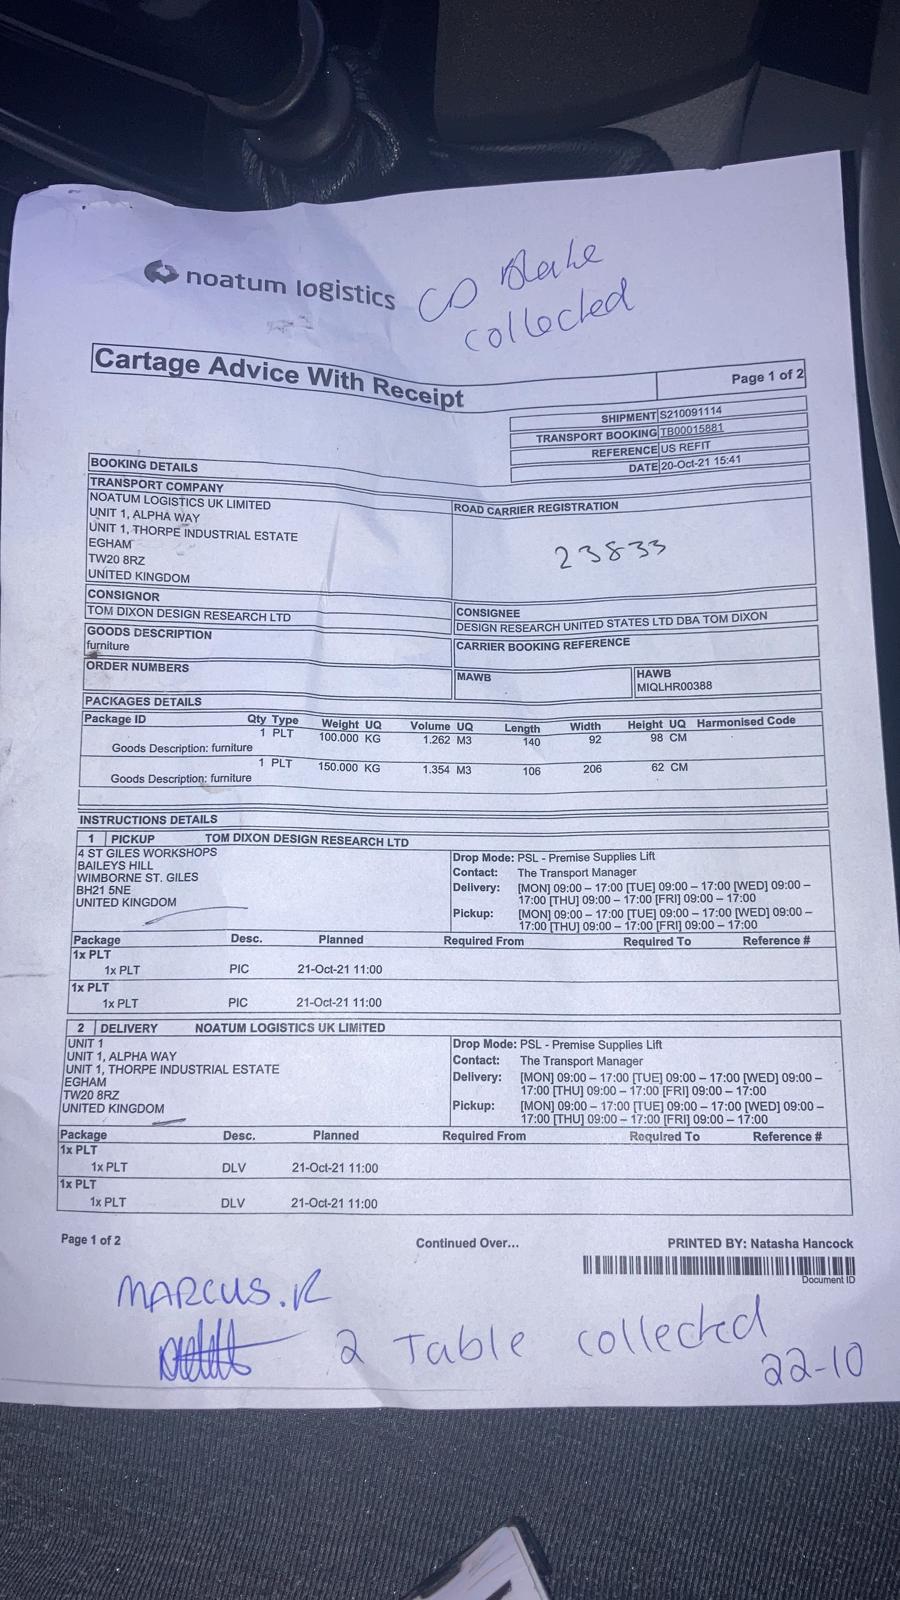 noatum logistics
CD Blake
collected
Cartage Advice With Receipt
Page 1 of 2
SHIPMENT S210091114
TRANSPORT BOOKING TB00015881
REFERENCE US REFIT
DATE 20-Oct-21 15:41
BOOKING DETAILS
TRANSPORT COMPANY
NOATUM LOGISTICS UK LIMITED
UNIT 1, ALPHA WAY
UNIT 1, THORPE INDUSTRIAL ESTATE
EGHAM
TW20 8RZ
UNITED KINGDOM
ROAD CARRIER REGISTRATION
23833
CONSIGNOR
TOM DIXON DESIGN RESEARCH LTD
CONSIGNEE
DESIGN RESEARCH UNITED STATES LTD DBA TOM DIXON
GOODS DESCRIPTION
furniture
CARRIER BOOKING REFERENCE
ORDER NUMBERS
MAWB
HAWB
MIQLHR00388
PACKAGES DETAILS
Package ID Qty Type Weight UQ Volume UQ Length Width Height UQ Harmonised Code
1 PLT 100.000 KG 1.262 M3 140 92 98 CM
Goods Description: furniture
1 PLT 150.000 KG 1.354 M3 106 206 62 CM
Goods Description: furniture
INSTRUCTIONS DETAILS
1 PICKUP TOM DIXON DESIGN RESEARCH LTD
4 ST GILES WORKSHOPS
BAILEYS HILL
WIMBORNE ST. GILES
BH21 5NE
UNITED KINGDOM
Drop Mode: PSL - Premise Supplies Lift
Contact: The Transport Manager
Delivery: [MON] 09:00 – 17:00 [TUE] 09:00 – 17:00 [WED] 09:00 –
17:00 [THU] 09:00 – 17:00 [FRI] 09:00 – 17:00
Pickup: [MON] 09:00 – 17:00 [TUE] 09:00 – 17:00 [WED] 09:00 –
17:00 [THU] 09:00 – 17:00 [FRI] 09:00 – 17:00
Package Desc. Planned Required From Required To Reference #
1x PLT
1x PLT PIC 21-Oct-21 11:00
1x PLT
1x PLT PIC 21-Oct-21 11:00
2 DELIVERY NOATUM LOGISTICS UK LIMITED
UNIT 1
UNIT 1, ALPHA WAY
UNIT 1, THORPE INDUSTRIAL ESTATE
EGHAM
TW20 8RZ
UNITED KINGDOM
Drop Mode: PSL - Premise Supplies Lift
Contact: The Transport Manager
Delivery: [MON] 09:00 – 17:00 [TUE] 09:00 – 17:00 [WED] 09:00 –
17:00 [THU] 09:00 – 17:00 [FRI] 09:00 – 17:00
Pickup: [MON] 09:00 – 17:00 [TUE] 09:00 – 17:00 [WED] 09:00 –
17:00 [THU] 09:00 – 17:00 [FRI] 09:00 – 17:00
Package Desc. Planned Required From Required To Reference #
1x PLT
1x PLT DLV 21-Oct-21 11:00
1x PLT
1x PLT DLV 21-Oct-21 11:00
Page 1 of 2 Continued Over... PRINTED BY: Natasha Hancock
Document ID
MARCUS.R
2 Table collected
22-10